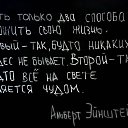 ть только два способа
жить свою жизнь.
вый-так, будто никаких
ес не бывает. Второй-та
дто всё на свете
ляется чудом.
Альберт Эйнштe